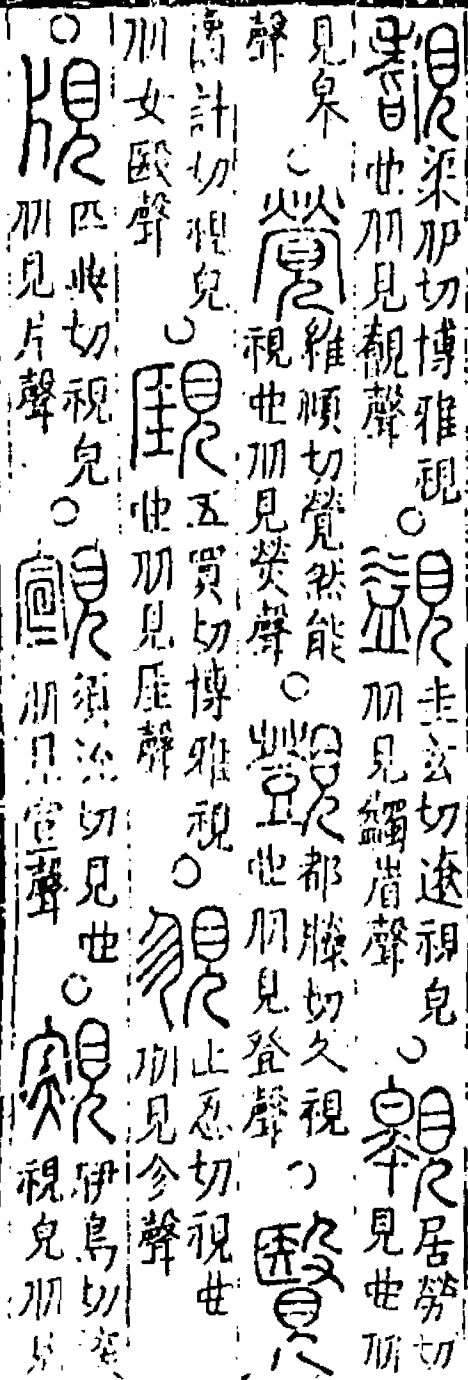 渠伊切博雅視
也从見聲
○
圭玄切遠視皃
从見蠲省聲
○
居勞切
見也从
見皋
聲
○
覮
維傾切覮然能
視也从見熒聲
○
覴
都騰切久視
也从見登聲
○
計切視皃
从女殹聲
○
五買切博雅視
也从見厓聲
○
覙
止忍切視也
从見㐱聲
○
匹妙切視皃
从見片聲
○
須沿切見也
从見宣聲
○
伊鳥切深
視皃从見